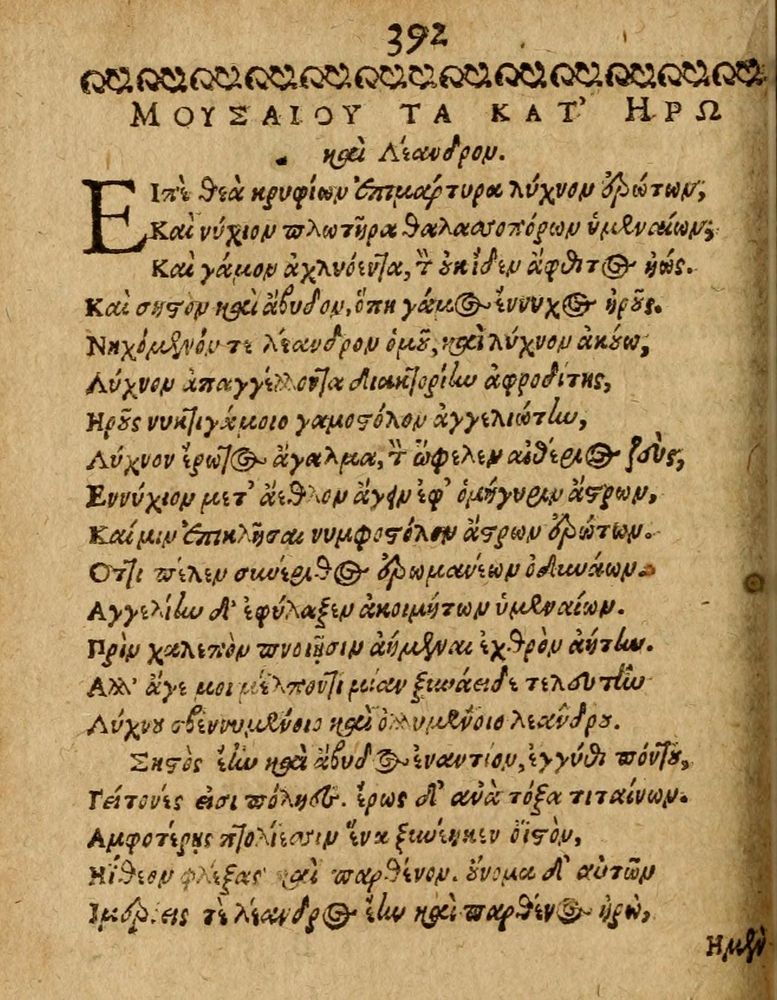 392
ΜΟΥΣΑΙΟΥ ΤΑ ΚΑΤ' ΗΡΩ
καὶ Λέανδρον.
ΕΙπὲ θεὰ κρυφίων ἐπιμάρτυρα λύχνον ἐρώτων,
Καὶ νύχιον πλωτῆρα θαλασσοπόρων ὑμεναίων,
Καὶ γάμον ἀχλυόεντα, τ̀ ὀκ ἴδεν ἄφθιτος ἠώς.
Καὶ σηστὸν καὶ ἄβυδον, ὅπη γάμος ἔννυχος ἡροῦς.
Νηχόμενόν τε λέανδρον ὁμοῦ, καὶ λύχνον ἀκούω,
Λύχνον ἀπαγγέλλοντα διακτορίην ἀφροδίτης,
Ηροῦς νυκτιγάμοιο γαμοστόλον ἀγγελιώτην,
Λύχνον ἔρωτος ἄγαλμα, τ̀ ὤφελεν αἰθέριος ζεὺς,
Εννύχιον μετ' ἄεθλον ἄγειν ἐφ' ὁμήγυριν ἄστρων,
Καί μιν ἐπικλῆσαι νυμφοστόλον ἄστρον ἐρώτων.
Οττι πέλεν συνέριθος ἐρωμανέων ὀδυνάων.
Αγγελίην δ' ἐφύλαξεν ἀκοιμήτων ὑμεναίων.
Πρὶν χαλεπὸν πνοιῆσιν ἀήμεναι ἐχθρὸν ἀήτην.
Αλλ' ἄγε μοι μέλποντι μίαν ξυνάειδε τελευτὴν
Λύχνου σβεννυμένοιο καὶ ὀλλυμένοιο λεάνδρου.
Σηστὸς ἔην καὶ ἄβυδος ἐναντίον, ἐγγύθι πόντου,
Γείτονές εἰσι πόληες. ἔρως δ' ἀνὰ τόξα τιταίνων.
Αμφοτέρης πτολίεσσιν ἕνα ξυνέηκεν ὀϊστὸν,
Ηΐθεον φλέξας καὶ παρθένον. οὔνομα δ' αὐτῶν
Ιμερόεις τὲ λέανδρος ἔην καὶ παρθένος ἡρὼ,
Ημὲν